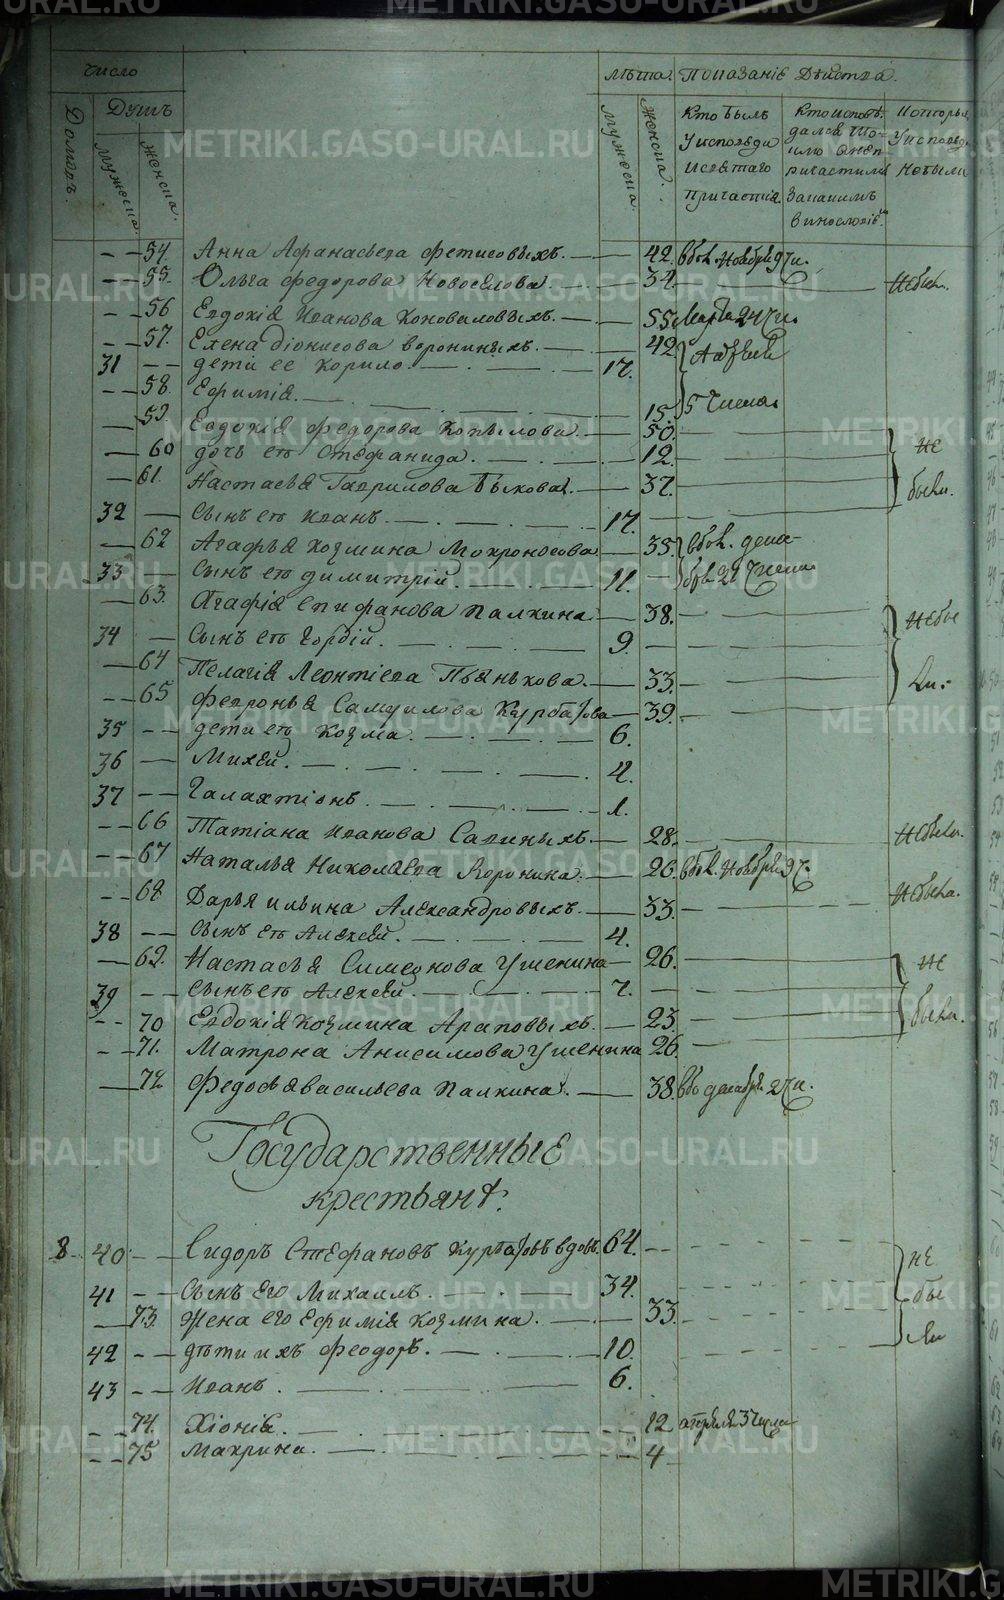 Число
Лѣта. Показаніе Дѣйства.
Домовъ.
Душъ
Мужеска.
Женска.
Мужеска.
Женска.
Кто былъ
У исповеди
И святаго
Причастія
Кто исповѣ-
дался То-
кмо А неп-
ричастился
Зачаимъ
винословіѣмъ
Которые
У исповеди
Небыли
54. Анна Афанасьева Фетисовыхъ. 42. Ноября 9 Чи.
55. Ольга Федорова Новоселова. 34. Небыл.
56 Евдокія Иванова Коноваловыхъ. 55 Марта 24 Чи.
57. Елена Діонисова ворониныхъ. 42
31 дети ее Корнило. 17.
58. Ефимія. 15. 5 Числа.
59. Евдокія Федорова Копылова. 50. Не
60 дочь ея Стефанида. 12.
61. Настасья Гаврилова Быкова. 37. были.
32 Сынъ ея Иванъ. 17.
62 Агафья Козмина Мокроносова 35. дека-
33 Сынъ ея димитрій. 11. бря 22 Числа
63. Агафія Епифанова Палкина 38. Небы
34 Сынъ ея Гордій. 9.
64 Пелагія Леонтіева Пьянькова. 33. Ли.
65 Февронья Самуилова Курбатова 39.
35 дети ея Козма. 6.
36 Михей. 4.
37 Галактіонъ. 1.
66 Татіана Иванова Савиныхъ. 28. Небыли.
67 Наталья Николаева Воронина. 26. Ноября 9 Ч.
68 Дарья ильина Александровыхъ. 33. Небыла.
38 Сынъ ея Алексей. 4.
69. Настасья Симеонова Ушенина 26. Не
39 Сынъ ея Алексей. 7.
70 Евдокія Козмина Араповыхъ. 23. были.
71. Матрона Анисимова Ушенина 26.
72 Федосья васильева Палкина. 38. декабря 2 Чи.
Государственные
крестьяне.
8 40 Сидоръ Стефановъ Курбатовъ вдовъ. 64. не
41 Сынъ Его Михаилъ. 34. бы
73. Жена его Ефимія Козмина. 33. ли
42 дѣти ихъ Феодоръ. 10.
43 Иванъ. 6.
74. Хіонія. 12 апреля 3 Числа
75 Макрина. 4
METRIKI.GASO-URAL.RU